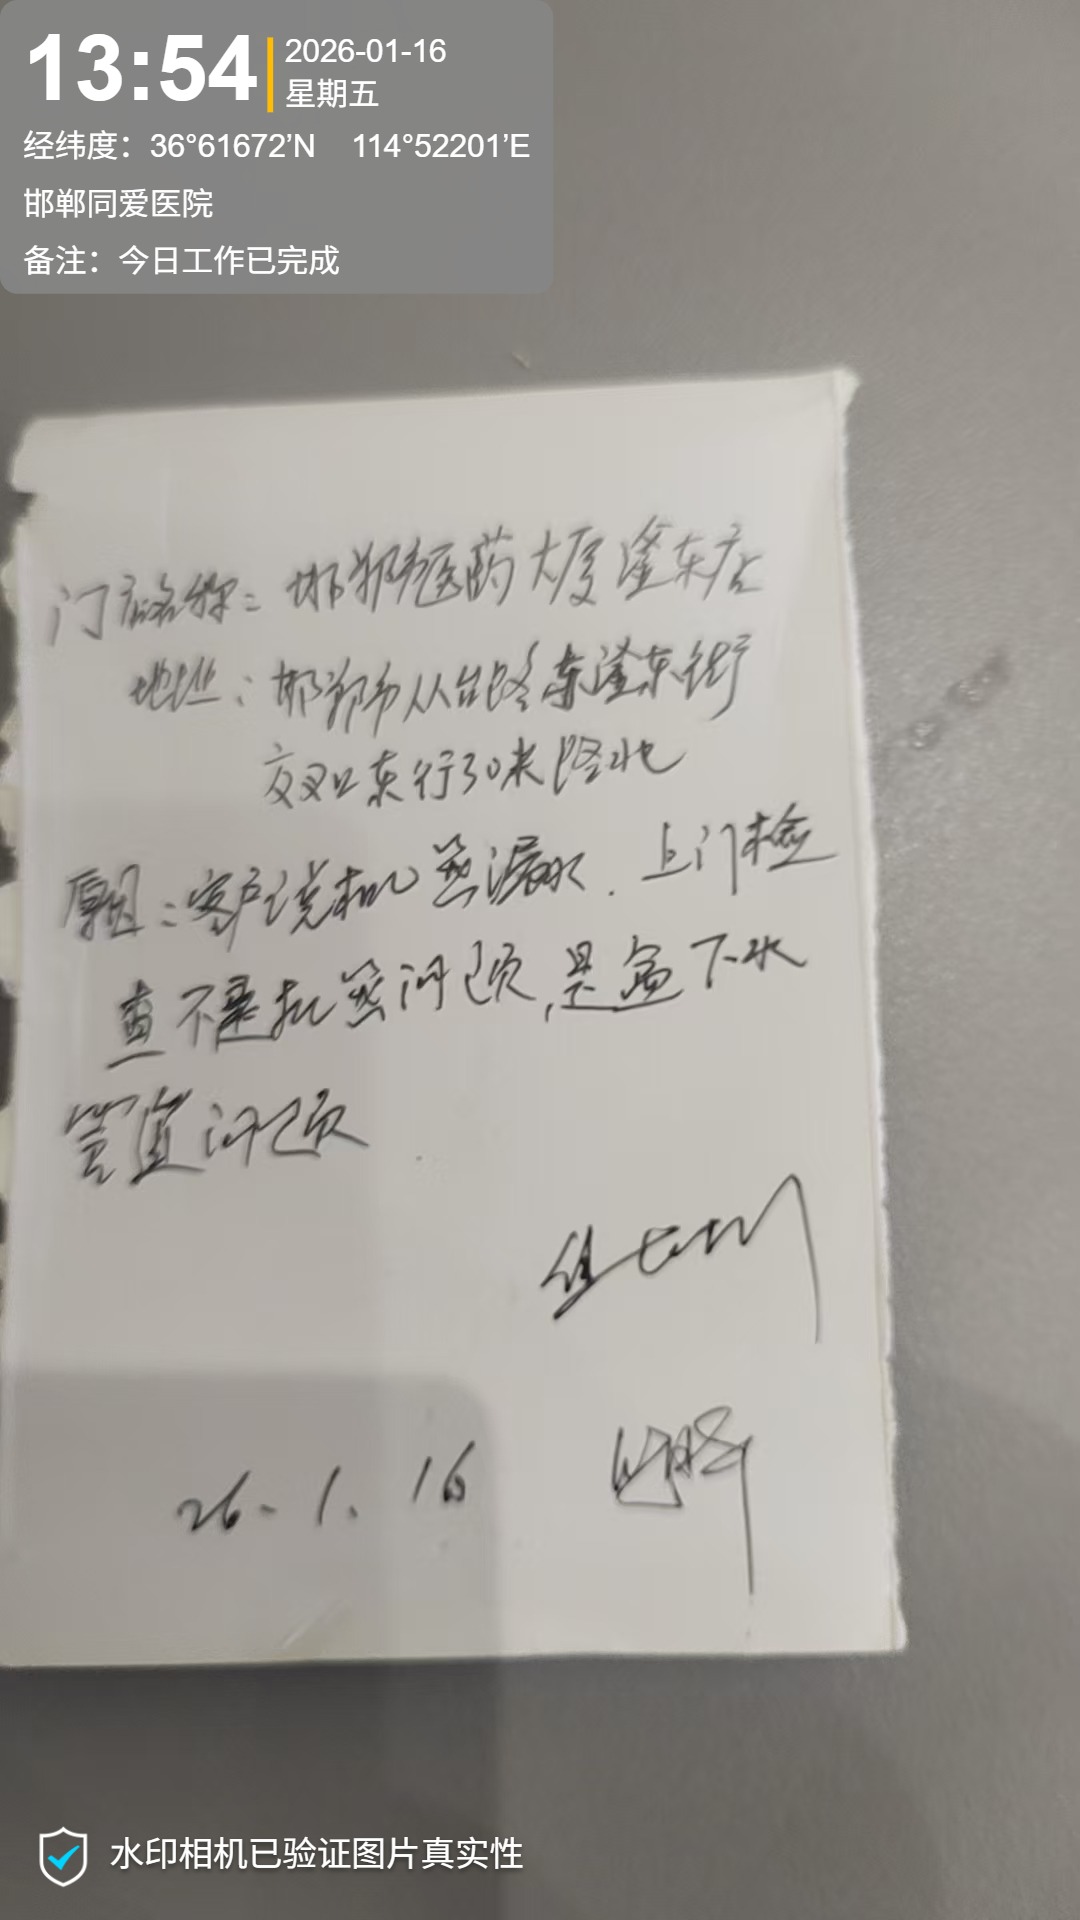 13:54
2026-01-16
星期五
经纬度：36°61672’N 114°52201’E
邯郸同爱医院
备注：今日工作已完成
门店名称：邯郸医药大厦滏东店
地址：邯郸市丛台路东滏东街
交叉口东行30米路北
原因：客户说机器漏水．上门检
查不是机器问题，是盆下水
管道问题
26.1.16
水印相机已验证图片真实性